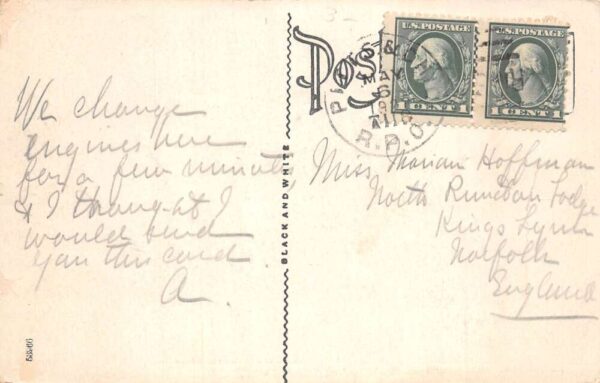 POS
U.S. POSTAGE
U.S. POSTAGE
1 CENT 1
1 CENT 1
MAY
6
R.P.O.
We change
engines here
for a few minutes
& I thought I
would send
you this card
A.
BLACK AND WHITE
Miss Marian Hoffman
North Runcton Lodge
Kings Lynn
Norfolk
England